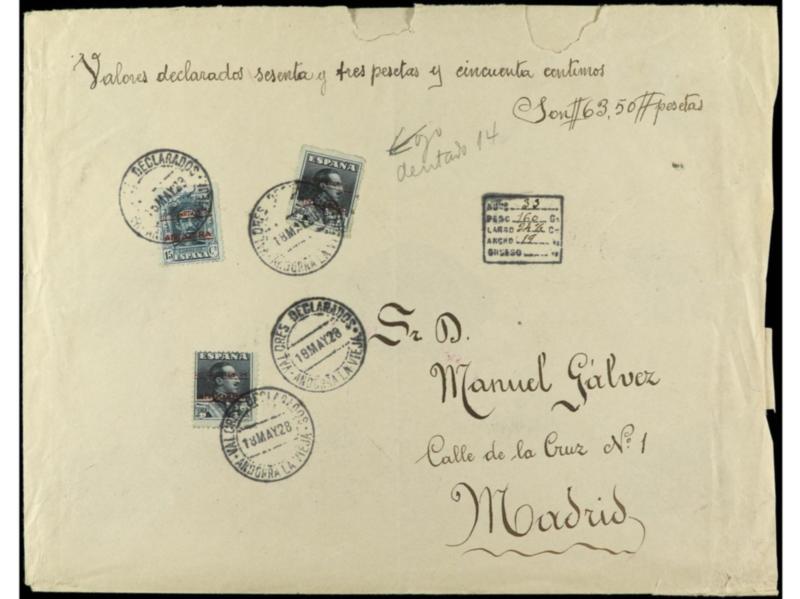 Valores declarados sesenta y tres pesetas y cincuenta centimos
Son #63,50# pesetas
dentado 14
DECLARADOS
18 MAY 28
ANDORRA
15 Cs
ESPAÑA
ESPAÑA
VALORES DE
18 MAY 28
ANDORRA LA
33
PESO 160 G
LARGO
ANCHO 19
GRUESO
VALORES DECLARADOS
18 MAY 28
ANDORRA LA VIEJA
ESPAÑA
VALORES DECLARADOS
18 MAY 28
ANDORRA LA VIEJA
Sr. D.
Manuel Gálvez
Calle de la Cruz Nº 1
Madrid